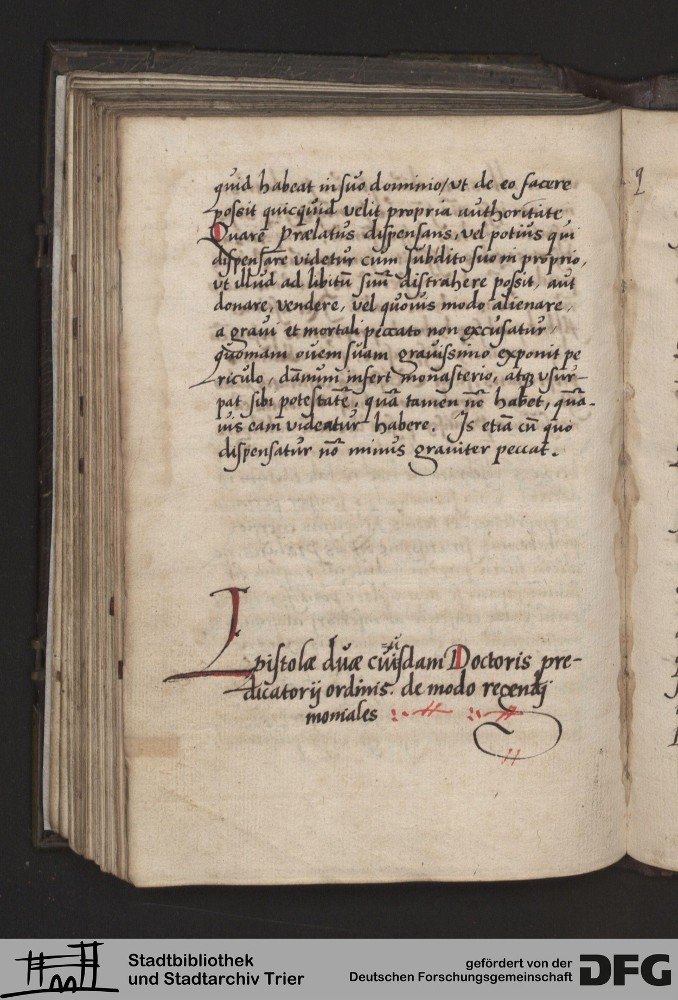 quid habeat in suo dominio/ ut de eo facere
possit quicquid velit propria authoritate
Quare Prælatus dispensans, vel potius qui
dispensare videtur cum subdito suo in proprio,
ut illud ad libitũ suũ distrahere possit, aut
donare, vendere, vel quovis modo alienare,
a gravi et mortali peccato non excusatur,
quoniam ovem suam gravissimo exponit pe
riculo, damnum infert monasterio, atq3 usur-
pat sibi potestatẽ, quã tamen nõ habet, quã-
vis eam videatur habere. Is etiã cũ quo
dispensatur nõ minus graviter peccat.
Epistolæ duæ cuiusdam Doctoris pre-
dicatorij ordinis. de modo regendi
moniales
q
Stadtbibliothek
und Stadtarchiv Trier
gefördert von der
Deutschen Forschungsgemeinschaft
DFG